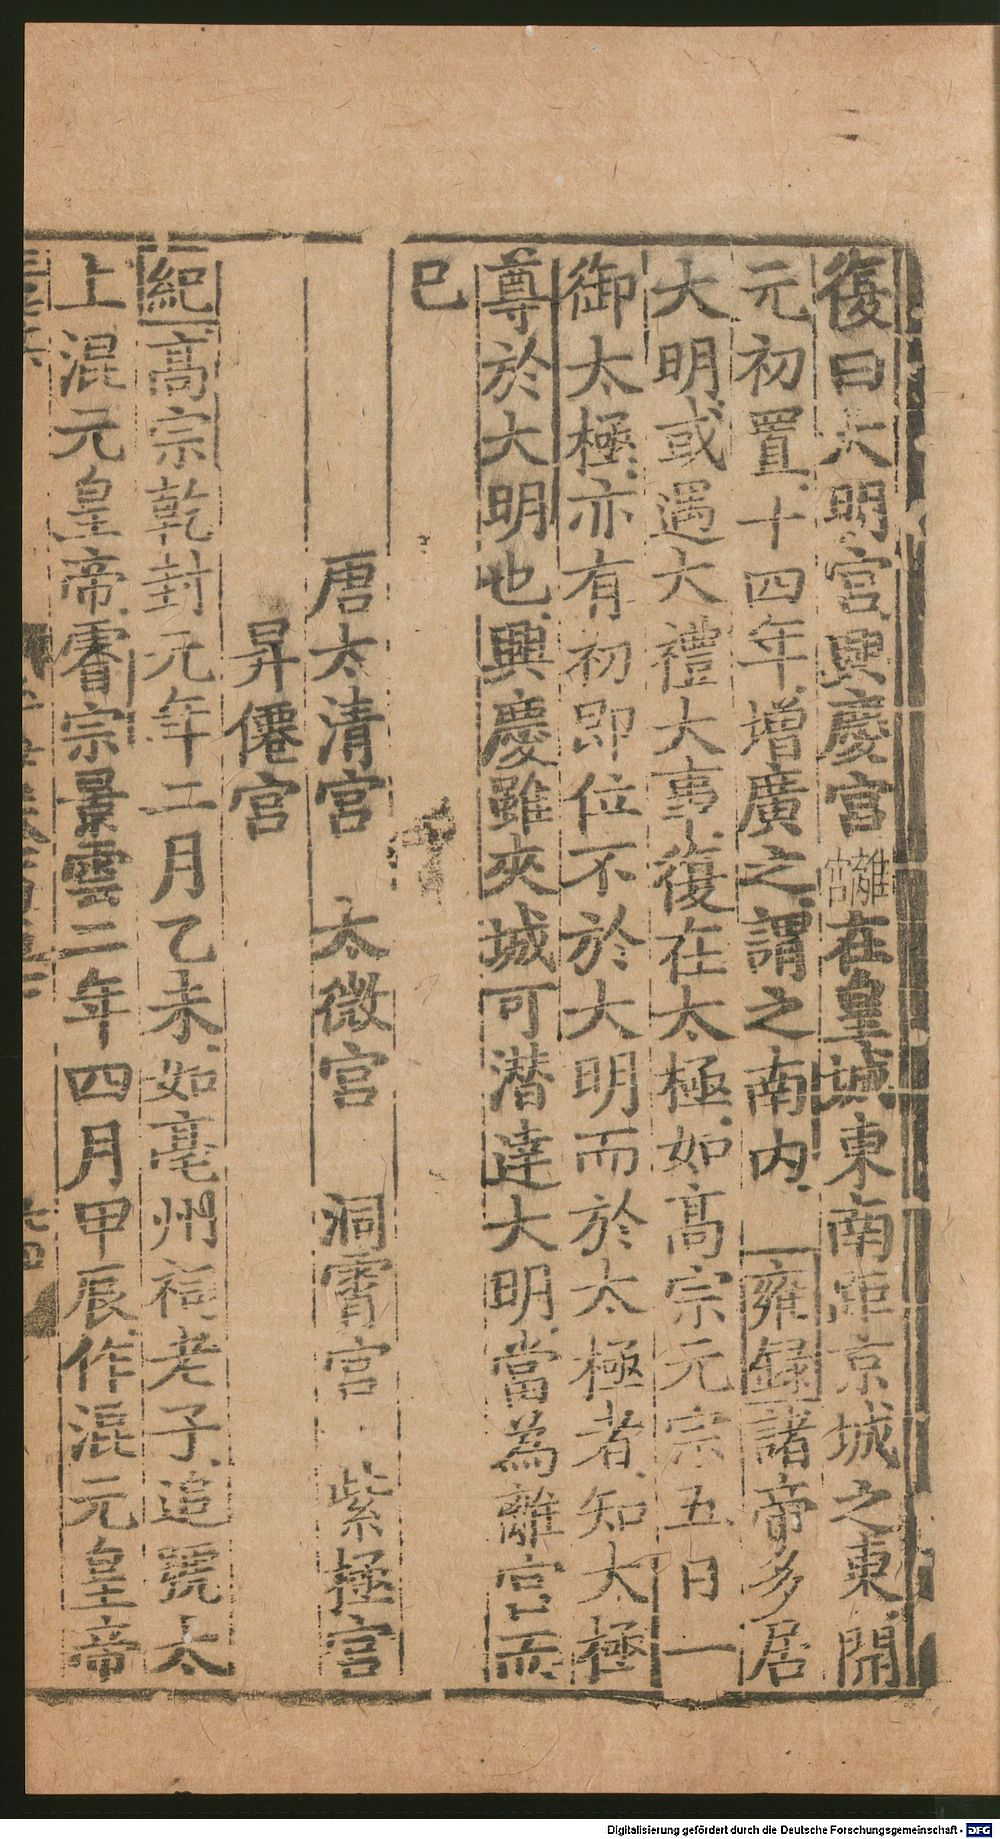 復曰大明宮興慶宮離宮在皇城東南距京城之東開
元初置十四年增廣之謂之南內雍錄諸帝多居
大明或遇大禮大事復在太極如高宗元宗五日一
御太極亦有初即位不於大明而於太極者知太極
尊於大明也興慶雖夾城可潛達大明當為離宮而
已
唐太清宮 太微宮 洞霄宮 紫極宮
昇僊宮
紀高宗乾封元年二月乙未如亳州祠老子追號太
上混元皇帝睿宗景雲二年四月甲辰作混元皇帝
Digitalisierung gefördert durch die Deutsche Forschungsgemeinschaft - DFG